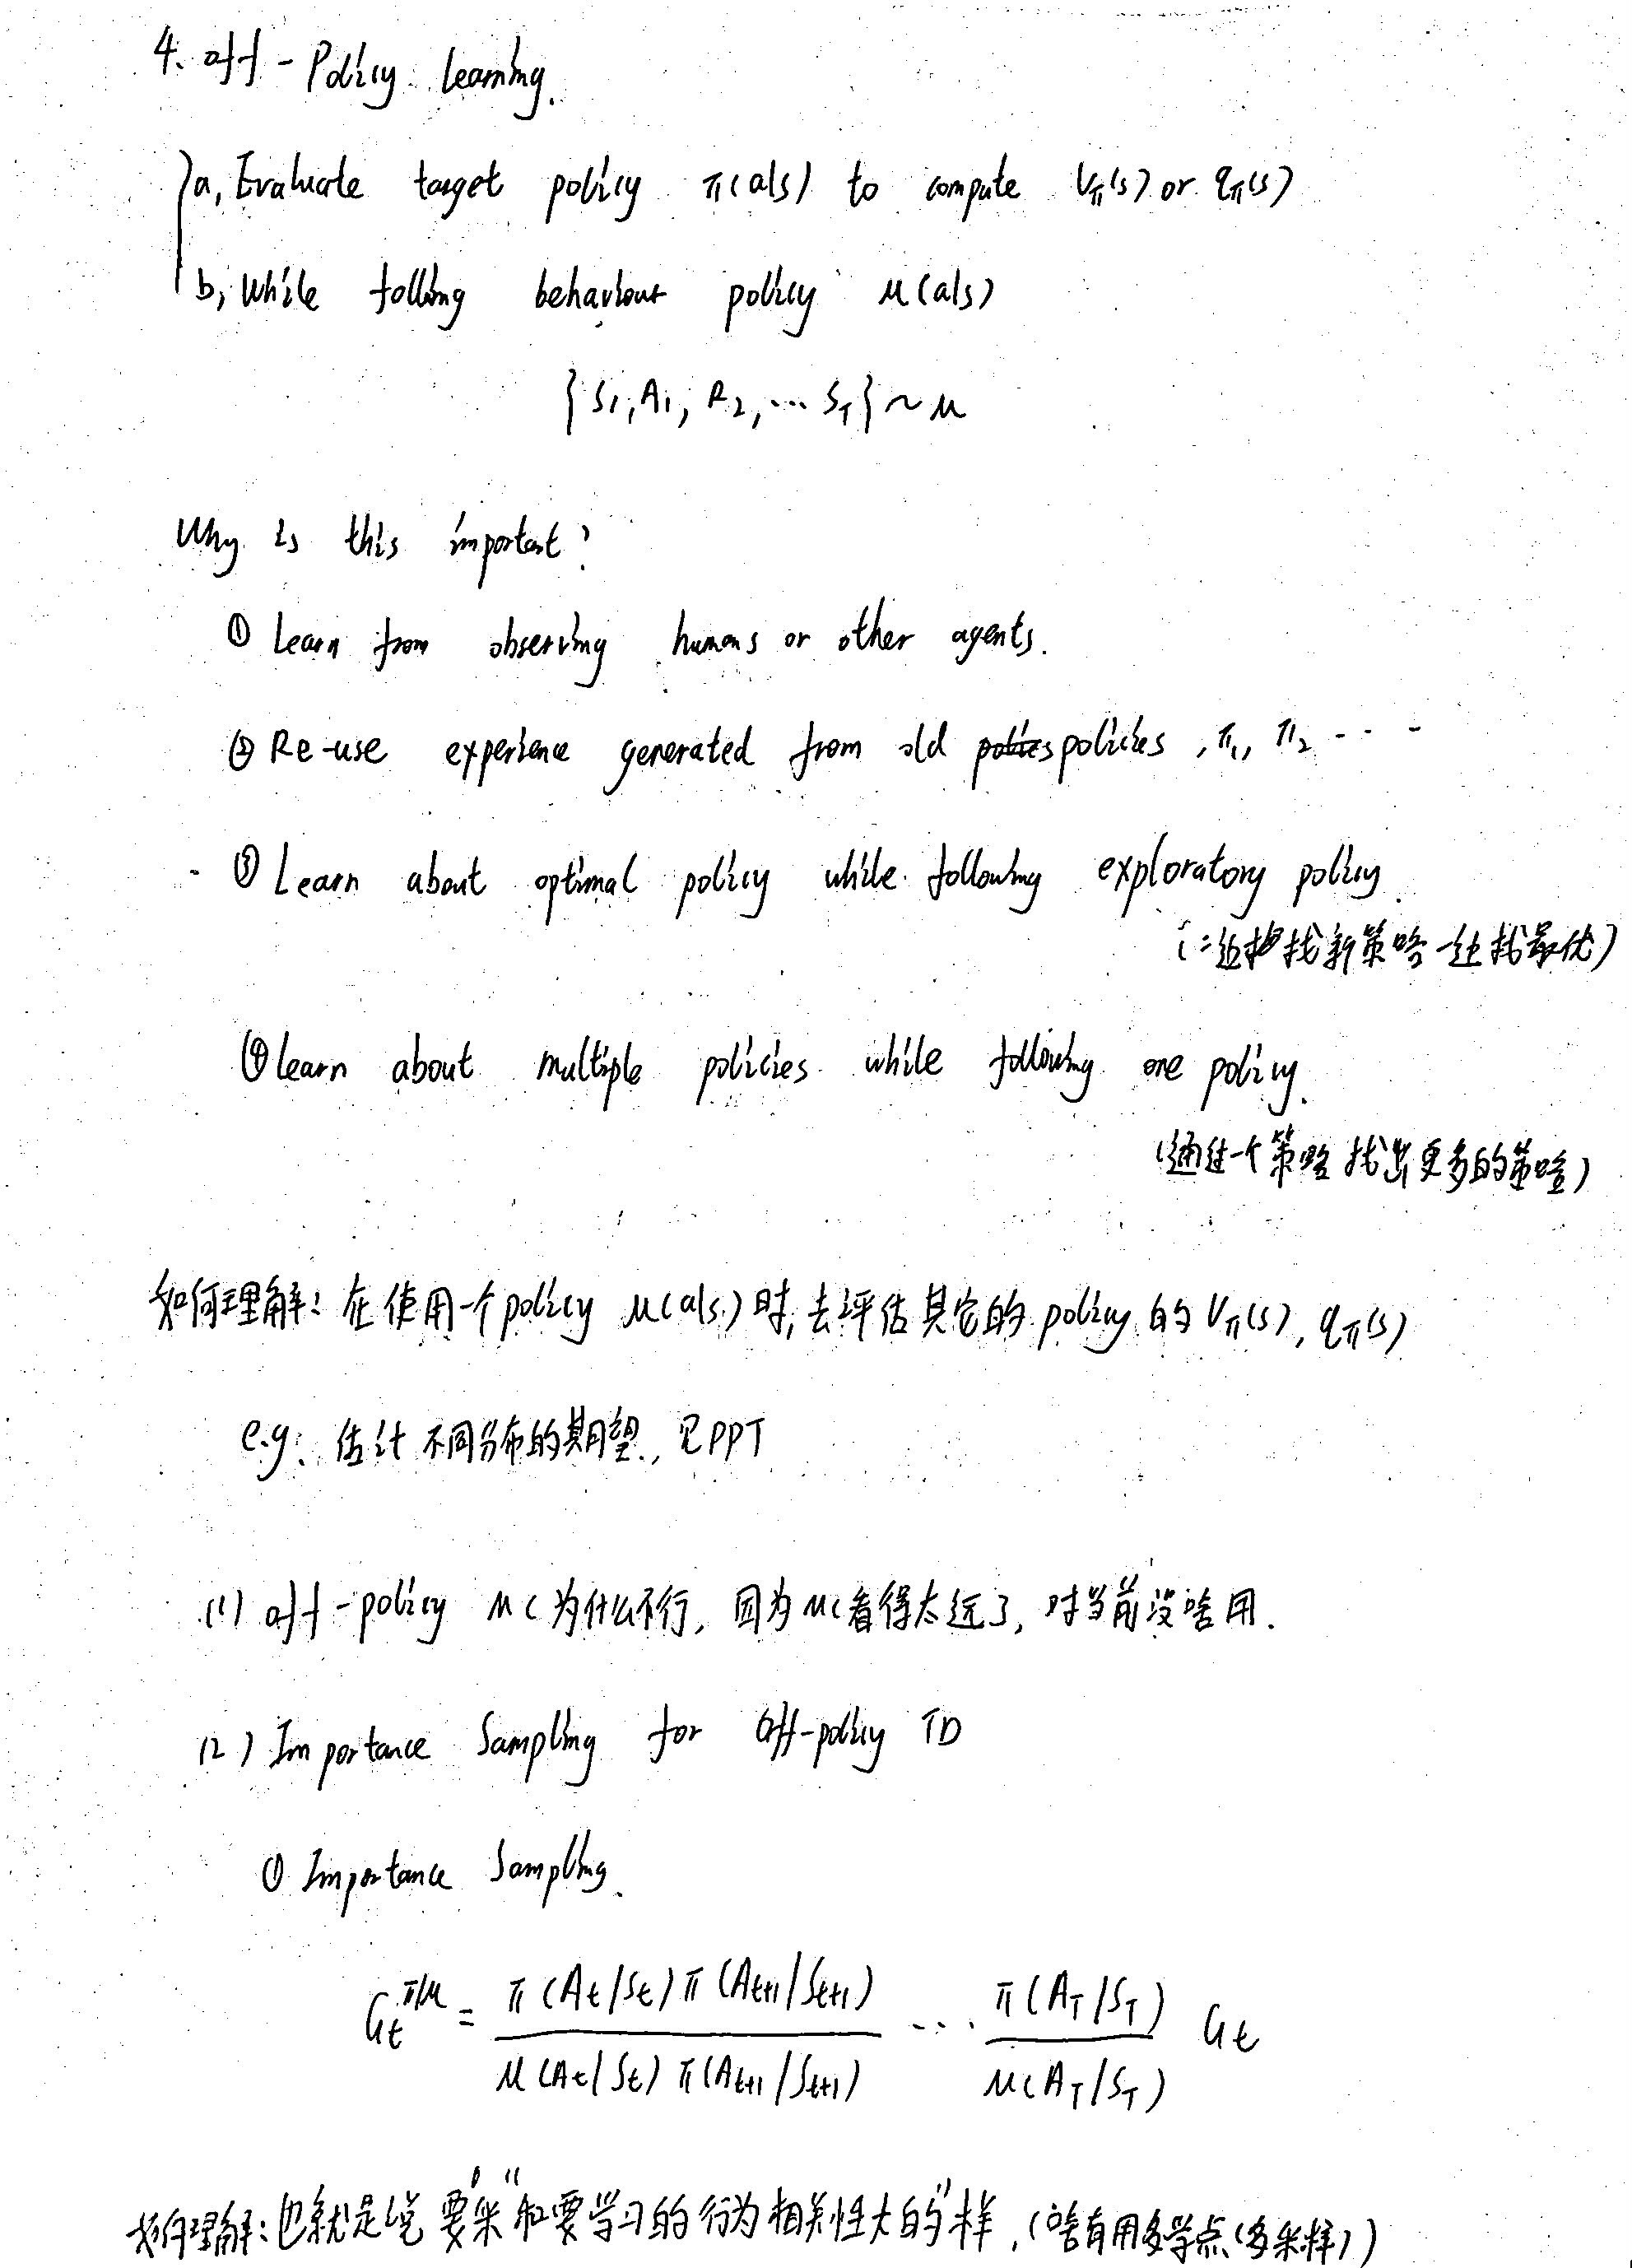 4. off-Policy learning.
a, Evaluate target policy π(a|s) to compute Vπ(s) or qπ(s)
b, While folling behaviour policy μ(a|s)
{S1, A1, R2, ... ST} ~ μ
Why is this important?
① Learn from observing humans or other agents.
② Re-use experience generated from old policies, π1, π2 ---
③ Learn about optimal policy while following exploratory policy.
找新策略一边找最优)
④ learn about multiple policies while following one policy.
(通过一个策略找出更多的策略)
如何理解: 在使用一个policy μ(a|s)时, 去评估其它的policy的Vπ(s), qπ(s)
e.g: 估计不同分布的期望, 见PPT
(1) off-policy MC为什么不行, 因为MC看得太远了, 对当前没啥用.
(2) Importance Sampling for Off-policy TD
① Importance Sampling.
Gt^π/μ = π(At/St)π(At+1/St+1) / μ(At/St)π(At+1/St+1) ... π(AT/ST) / μ(AT/ST) Gt
如何理解: 也就是说要采"和要学习的行为相关性大的"样, (啥有用多学点(多采样))